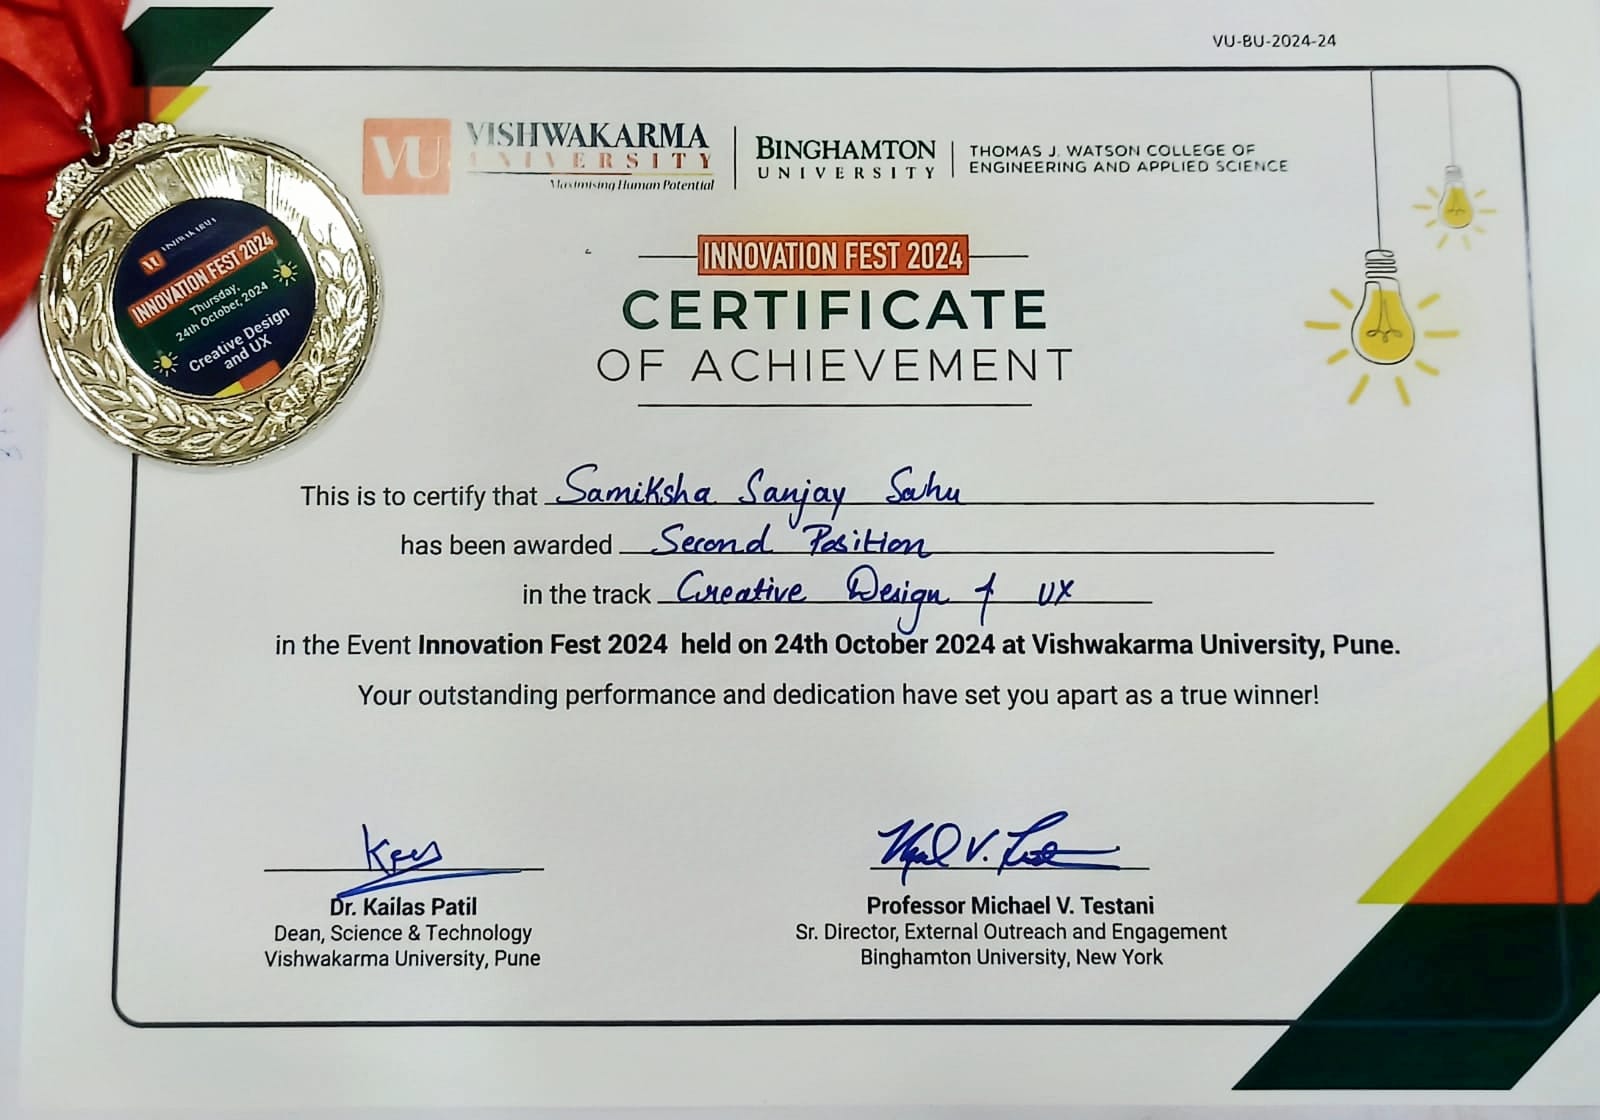 VU-BU-2024-24
VU VISHWAKARMA
UNIVERSITY
Maximising Human Potential
BINGHAMTON
UNIVERSITY
THOMAS J. WATSON COLLEGE OF
ENGINEERING AND APPLIED SCIENCE
VISHWAKARMA
VU
INNOVATION FEST 2024
Thursday,
24th October, 2024
Creative Design
and UX
INNOVATION FEST 2024
CERTIFICATE
OF ACHIEVEMENT
This is to certify that Samiksha Sanjay Sahu
has been awarded Second Position
in the track Creative Design & UX
in the Event Innovation Fest 2024 held on 24th October 2024 at Vishwakarma University, Pune.
Your outstanding performance and dedication have set you apart as a true winner!
Dr. Kailas Patil
Dean, Science & Technology
Vishwakarma University, Pune
Professor Michael V. Testani
Sr. Director, External Outreach and Engagement
Binghamton University, New York